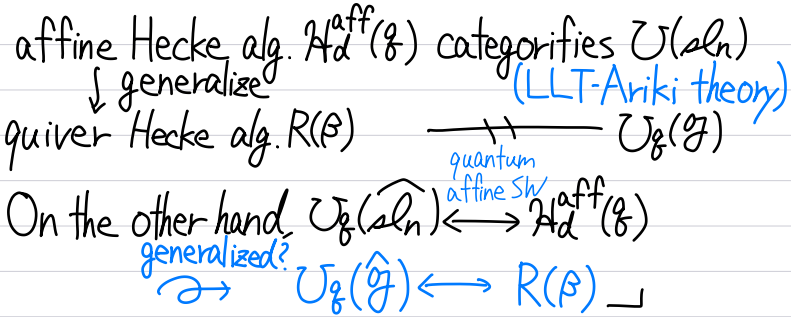 affine Hecke alg. H_d^{aff}(q) categorifies U(sl_n)
↓ generalize (LLT-Ariki theory)
quiver Hecke alg. R(β) —\\— U_q(g)
quantum
affine SW
On the other hand, U_q(\widehat{sl_n}) ⟷ H_d^{aff}(q)
generalized?
⇝ U_q(ĝ) ⟷ R(β) 」